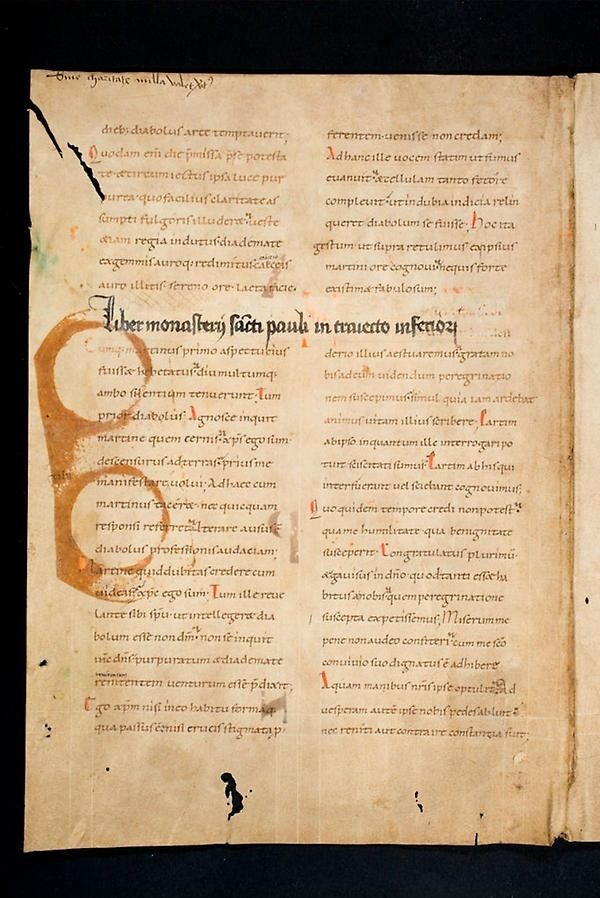 Sine charitate nulla valet
dieb; diabolus arte temptauerit;
Quodam em die p̄missa p̄se potesta
te & circumiectus ipsa luce pur
purea. quo facilius claritate as
sumpti fulgoris illuder& ueste
&iam regia indutus. diademate
ex gemmis auroq; redimitus. calceis
auro illitis. sereno ore. laeta facie.
Liber monasterij sancti pauli in traiecto inferiori
martinus primo aspectu eius
fuiss& hebetatus. diu multumq;
ambo silentium tenuerunt. Tum
prior diabolus. Agnosce inquit
martine quem cernis. xp̄s ego sum
descensurus ad terras. prius me
manifestare uolui. Ad haec cum
martinus tacer& nec quicquam
responsi referr& Iterare ausus ē
diabolus professionis audaciam;
Martine quid dubitas credere cum
uideas. xp̄c ego sum. Tum ille reue
lante sibi spū. ut intelleger& dia
bolum esse non dm̄. non se inquit
ihc dn̄s purpuratum & diademate
renitentem uenturum esse p̄dixit;
Ego xp̄m nisi in eo habitu formaq;
qua passus ē. nisi crucis stigmata p̄
ferentem. uenisse non credam;
Ad hanc ille uocem statim ut fumus
euanuit. & cellulam tanto fetore
compleuit. ut indubia indicia relin
queret diabolum se fuisse; Hoc ita
gestum ut supra retulimus ex ipsius
martini ore cognoui. ne quis forte
existim& fabulosum;
derio illius aestuaremus. gratam no
bis ad eum uidendum peregrinatio
nem suscepimus. simul quia iam ardebat
animus uitam illius scribere; Partim
ab ipso in quantum ille interrogari po
tuit sciscitati sumus. Partim ab his qui
interfuerant uel sciebant cognouimus;
Quo quidem tempore credi non potest.
qua me humilitate. qua benignitate
susceperit. Congratulatus plurimū
& gauisus in dn̄o. quod tanti ess& ha
bitus a nobis. quem peregrinatione
suscepta expetissemus; Miserum me
pene non audeo confiteri. cum me sc̄o
conuiuio suo dignatus ē adhibere
Aquam manibus nr̄is ipse optulit. Ad
uesperam autē ipse nobis pedes abluit.
nec reniti aut contraire constantia fuit;